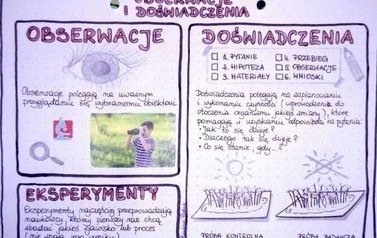 OBSERWACJE
I DOŚWIADCZENIA
OBSERWACJE
Obserwacje polegają na uważnym
przyglądaniu się wybranemu obiektowi
EKSPERYMENTY
Eksperymenty najczęściej przeprowadzają
naukowcy, którzy pierwszy raz chcą
zbadać jakieś zjawisko lub proces
DOŚWIADCZENIA
1. PYTANIE
2. HIPOTEZA
3. MATERIAŁY
4. PRZEBIEG
5. OBSERWACJE
6. WNIOSKI
Doświadczenia polegają na zaplanowaniu
i wykonaniu czynności (wprowadzenie do
otoczenia organizmu jakiejś zmiany), które
pomagają w uzyskaniu odpowiedzi na pytania:
• Jak to się dzieje?
• Dlaczego tak się dzieje?
• Co się stanie, gdy
PRÓBA KONTROLNA
PRÓBA BADAWCZA